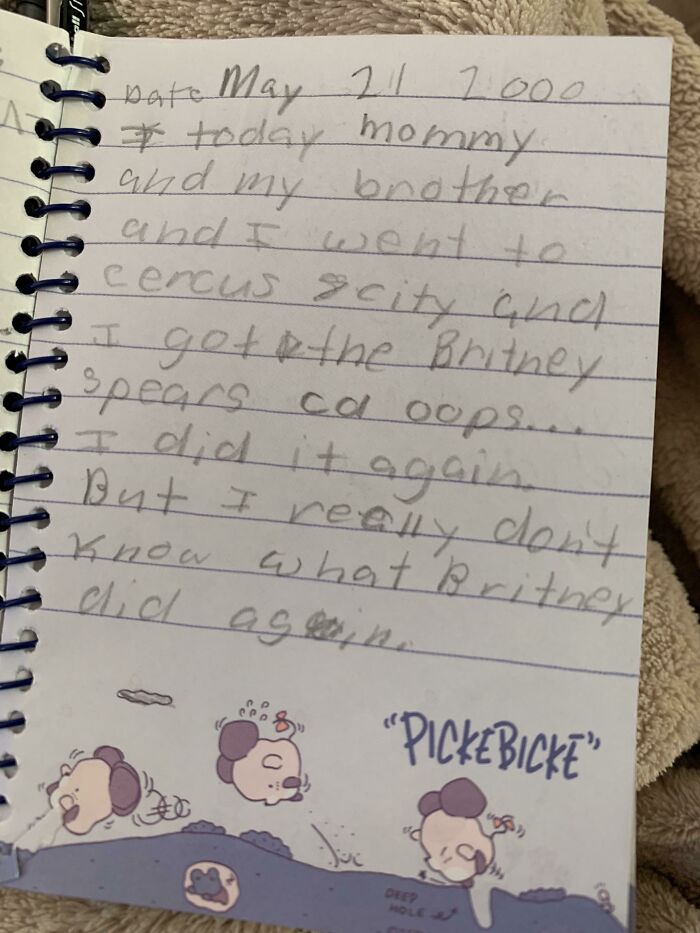 Date May 21 2000
I today mommy
and my brother
and I went to
cercus city and
I got the Britney
Spears cd oops...
I did it again.
But I really don't
know what Britney
did again.
"PICKEBICKE"
DEEP
HOLE